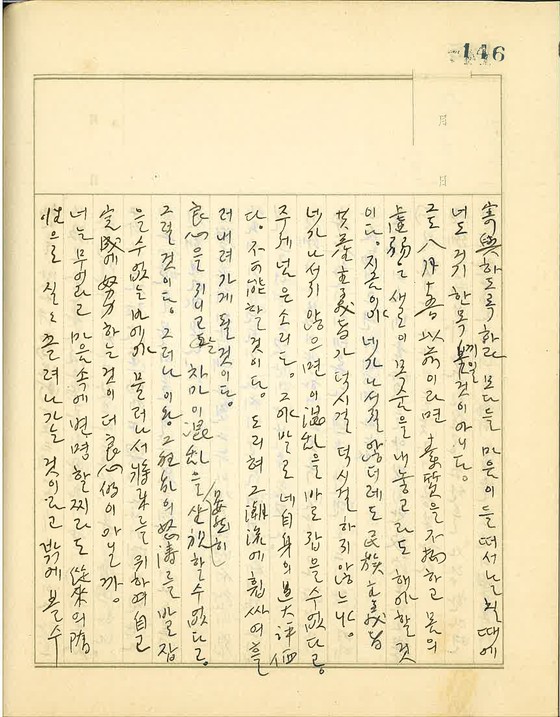 146
月
日
寄與하도록하라 모다들 마음이 들떠서 날칠때에
너도 거기 한목 낄 것이 아니다.
그도 八月十五日以前이라면 素質을 自揣하고 몸의
虛弱은 새로이 목숨을 내놓고라도 해야할 것
이다. 지금이야 네가 나서질 않더래도 民族主義者
共産主義者가 덕시걸 덕시걸 하지 않느냐.
네가 나서지 않으면 이 混乱을 바로 잡을 수 없다고.
주제넘은 소리다. 그야말로 네 自身의 過大評価
다. 不可能할 것이다. 도리혀 그 潮流에 휩싸여 흘
러내려가게 될 것이다.
良心을 가지고 참아 이 混乱을 坐視할 수 없다고.
그럴 것이다. 그러나 이왕 그 狂乱의 怒濤를 바로 잡
을 수 없는 바에야 물러나서 將來를 위하여 自己
完成에 努力하는 것이 더 良心的이 아닐까.
너는 무어라고 마음속에 변명할찌라도 從來의 惰
性으로 질질 끌려 나가는 것이라고 밖에 볼 수